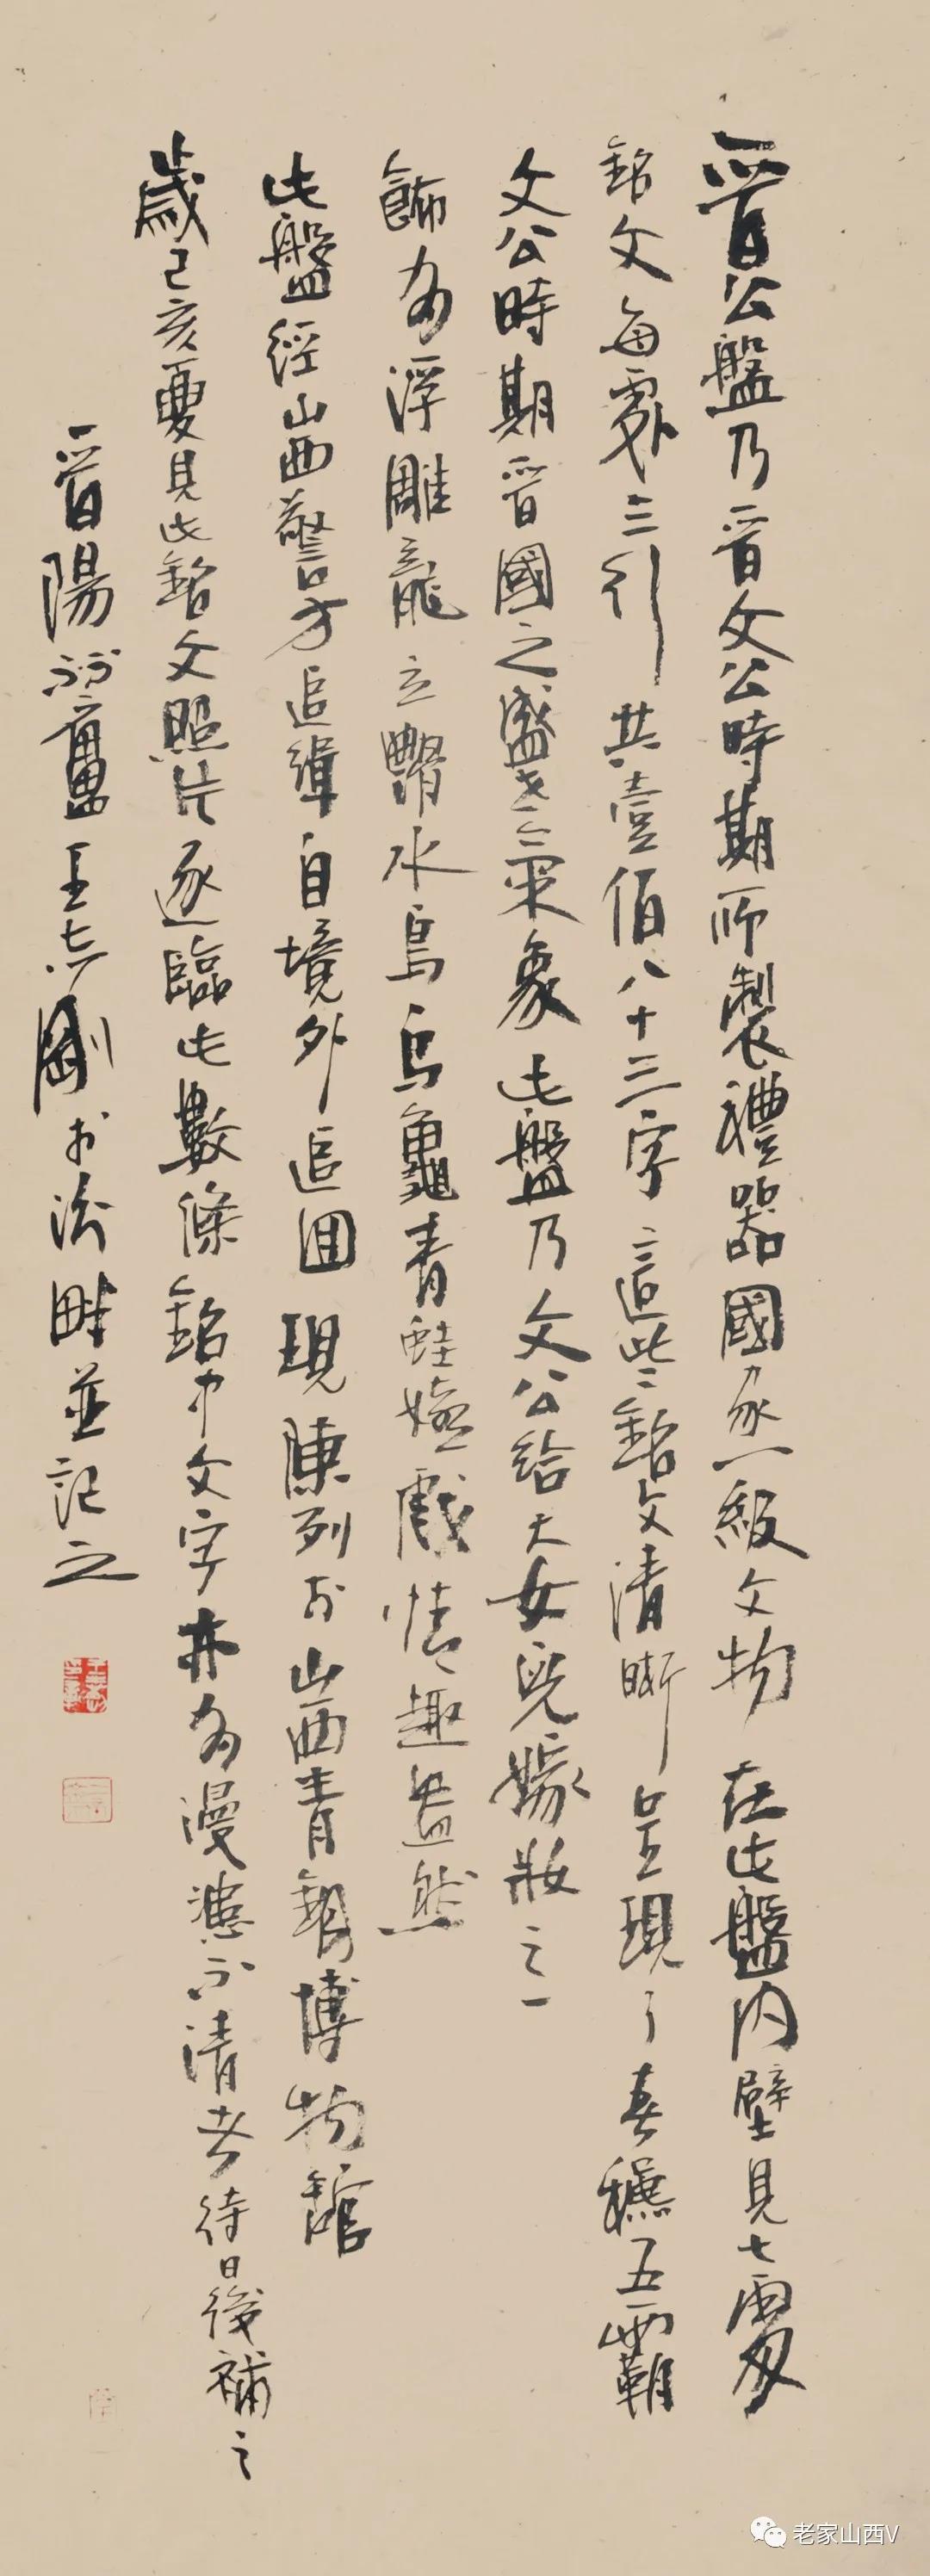 晋公盤乃晋文公時期所製禮器國家一級文物在此盤内壁見七處
銘文每處三行共壹佰八十三字這些銘文清晰呈現了春穐五霸
文公時期晋國之盛世氣象此盤乃文公給大女兒嫁妝之一
飾有浮雕龍立體水鳥烏龜青蛙嬉戲情趣盎然
此盤經山西警方追緝自境外追回現陳列於山西青銅博物館
歲己亥夏見此銘文照片逐臨此數條銘中文字亦有漫漶不清者待日後補之
晋陽 王志剛於汾畔並記之
老家山西V